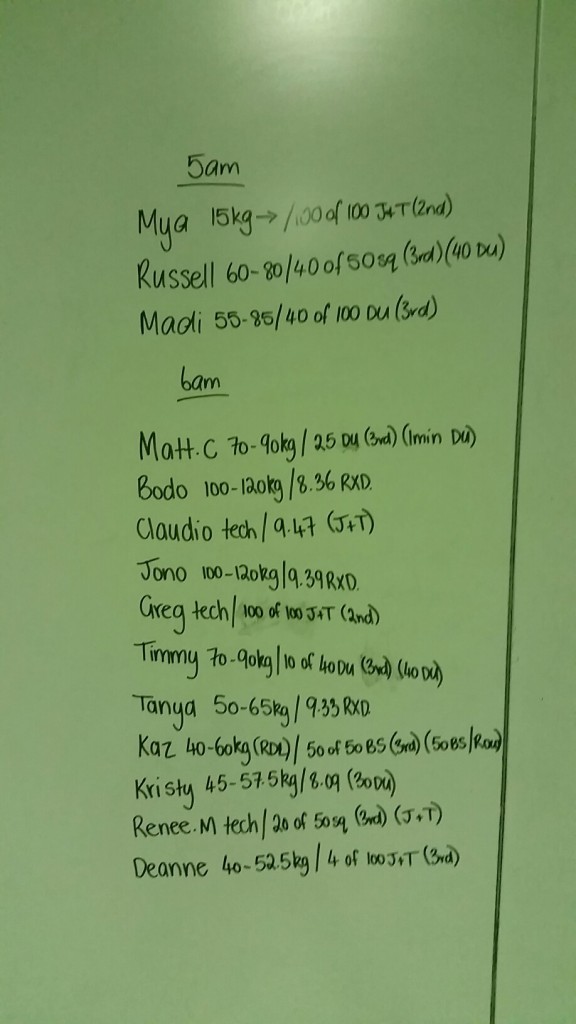 5am
Mya 15kg → /100 of 100 J+T (2nd)
Russell 60-80/40 of 50 sq (3rd) (40 DU)
Madi 55-85/40 of 100 DU (3rd)
6am
Matt.C 70-90kg/25 DU (3rd) (1min DU)
Bodo 100-120kg/8.36 RXD.
Claudio tech/9.47 (J+T)
Jono 100-120kg/9.39 RXD.
Greg tech/100 of 100 J+T (2nd)
Timmy 70-90kg/10 of 40 DU (3rd) (40 DU)
Tanya 50-65kg/9.33 RXD.
Kaz 40-60kg (RDL)/50 of 50 BS (3rd) (50 BS/Row)
Kristy 45-57.5kg/8.09 (30 DU)
Renee.M tech/20 of 50 sq (3rd) (J+T)
Deanne 40-52.5kg/4 of 100 J+T (3rd)